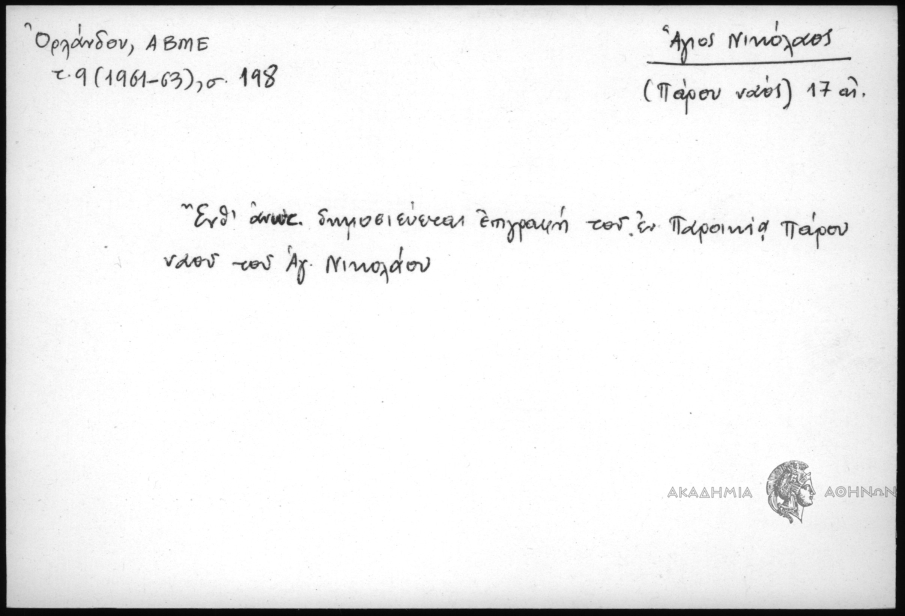 Ὀρλάνδου, ΑΒΜΕ
τ. 9 (1961-63), σ. 198
Ἅγιος Νικόλαος
(Πάρου ναός) 17 αἰ.
Ἔνθ' ἀνωτ. δημοσιεύεται ἐπιγραφή τοῦ ἐν Παροικίᾳ Πάρου
ναοῦ τοῦ Ἁγ. Νικολάου
ΑΚΑΔΗΜΙΑ ΑΘΗΝΩΝ